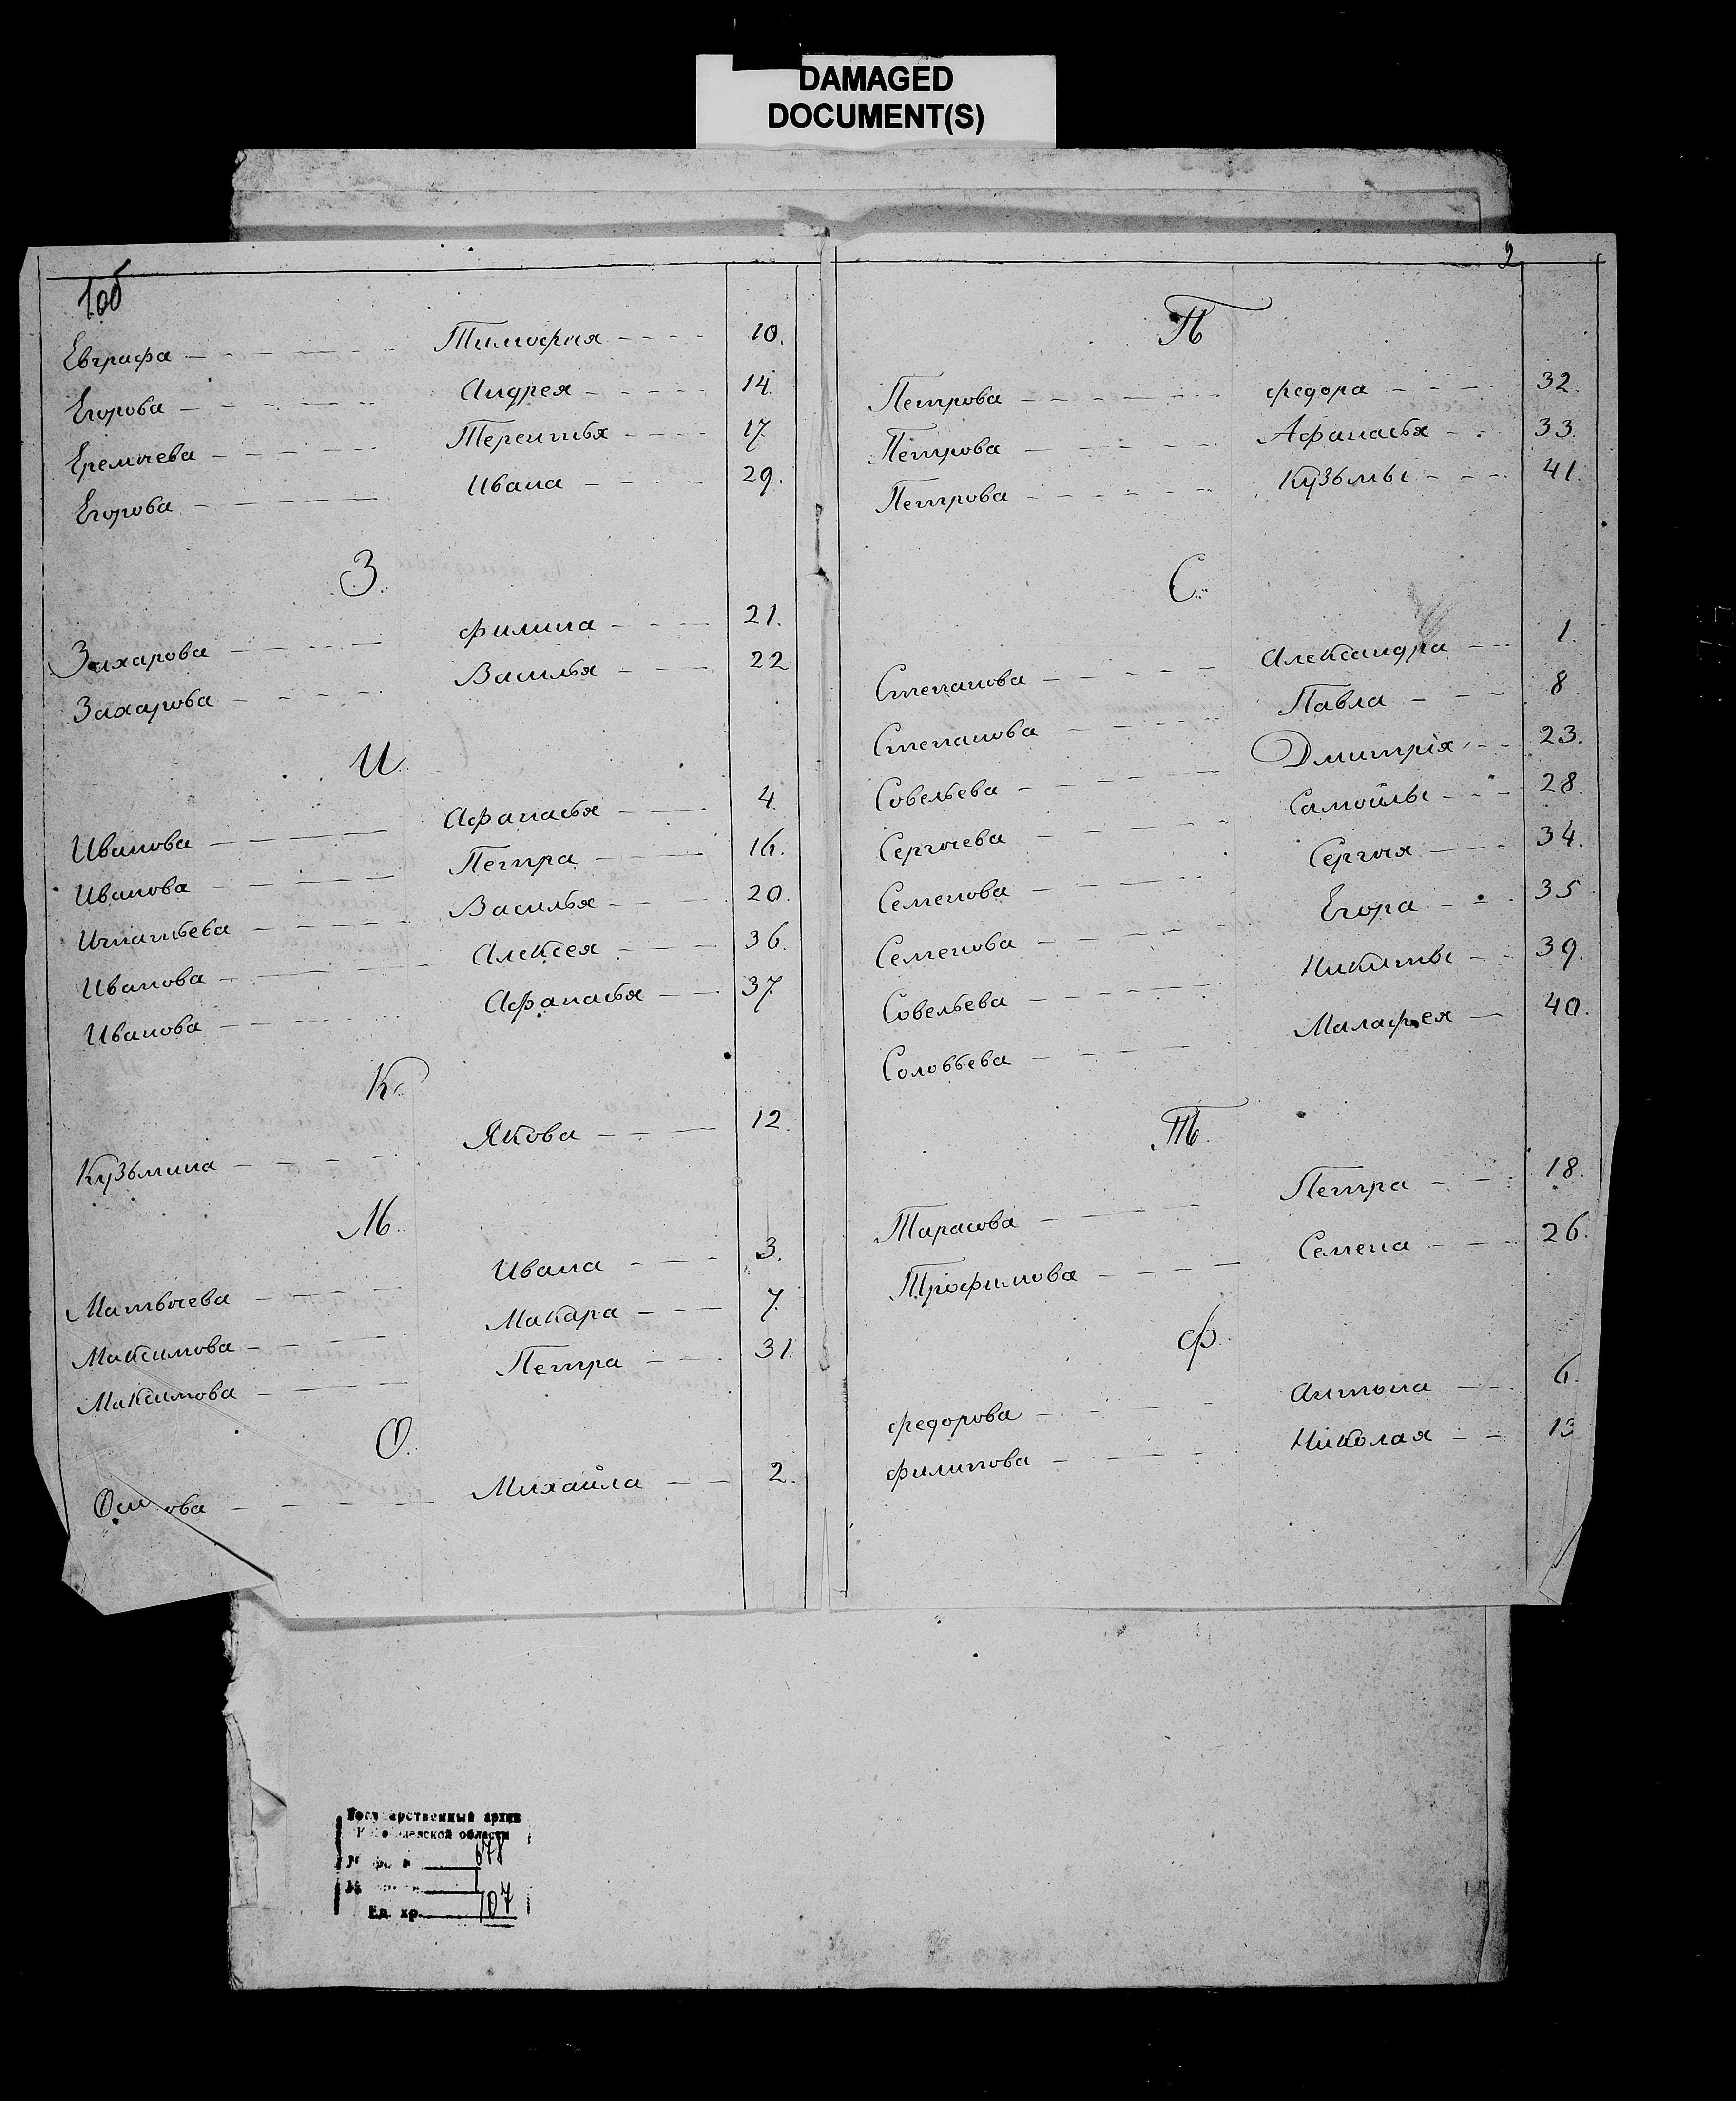 DAMAGED
DOCUMENT(S)
1об
Евграфа Тимофея 10.
Егорова Андрея 14.
Еремѣева Терентья 17
Егорова Ивана 29.
З.
Захарова Филипа 21.
Захарова Василья 22
И.
Иванова Афанасья 4.
Иванова Петра 16.
Игнатьева Василья 20.
Иванова Алексея 36.
Иванова Афанасья 37
К.
Кузьмина Якова 12.
М.
Матвѣева Ивана 3.
Максимова Макара 7.
Максимова Петра 31.
О.
Михайла 2.
2
П
Петрова Федора 32.
Петрова Афанасья 33.
Петрова Кузьмы 41.
С.
Степанова Александра 1.
Степанова Павла 8.
Совельева Дмитрія 23.
Сергѣева Самойлы 28
Семенова Сергѣя 34.
Семенова Егора 35
Совельева Никиты 39.
Соловьева Малафея 40.
Т.
Тарасова Петра 18.
Трофимова Семена 26.
Ф.
Федорова Антона 6.
Филипова Николая 13
Государственный архив
области
678
1
Ед. хр. 107